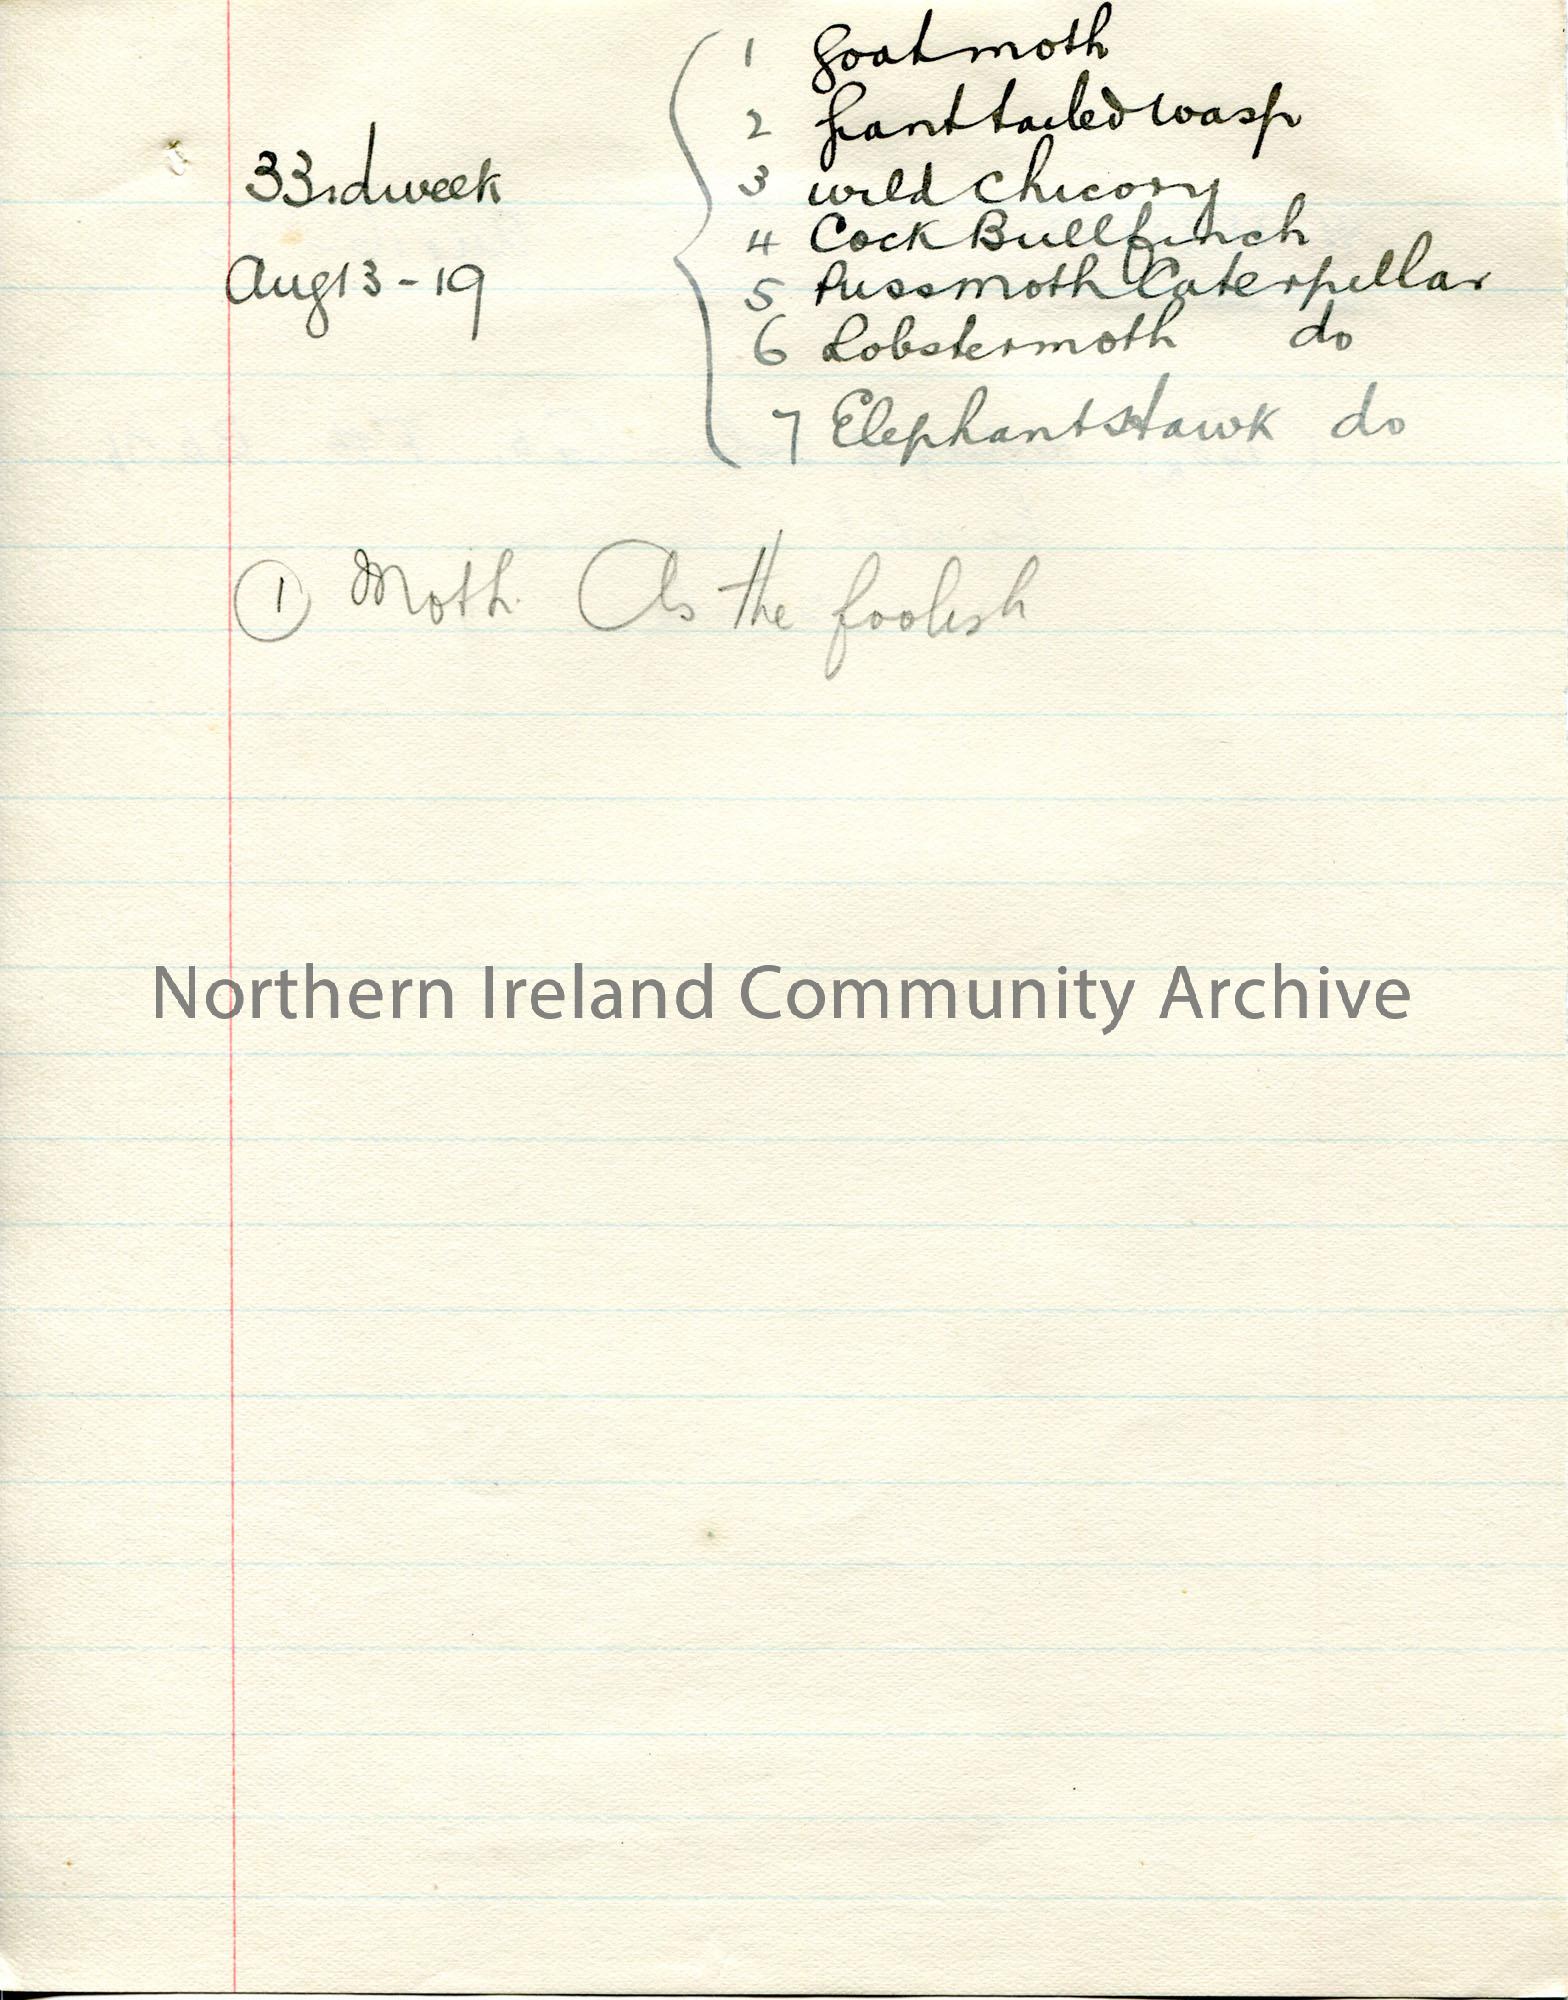 1 Goat moth
2 Giant tailed wasp
3 wild chicory
33rd week
4 Cock Bullfinch
Aug 13 - 19
5 Pussmoth Caterpillar
6 Lobstermoth do
7 Elephants Hawk do
1 Moth. As the foolish
Northern Ireland Community Archive